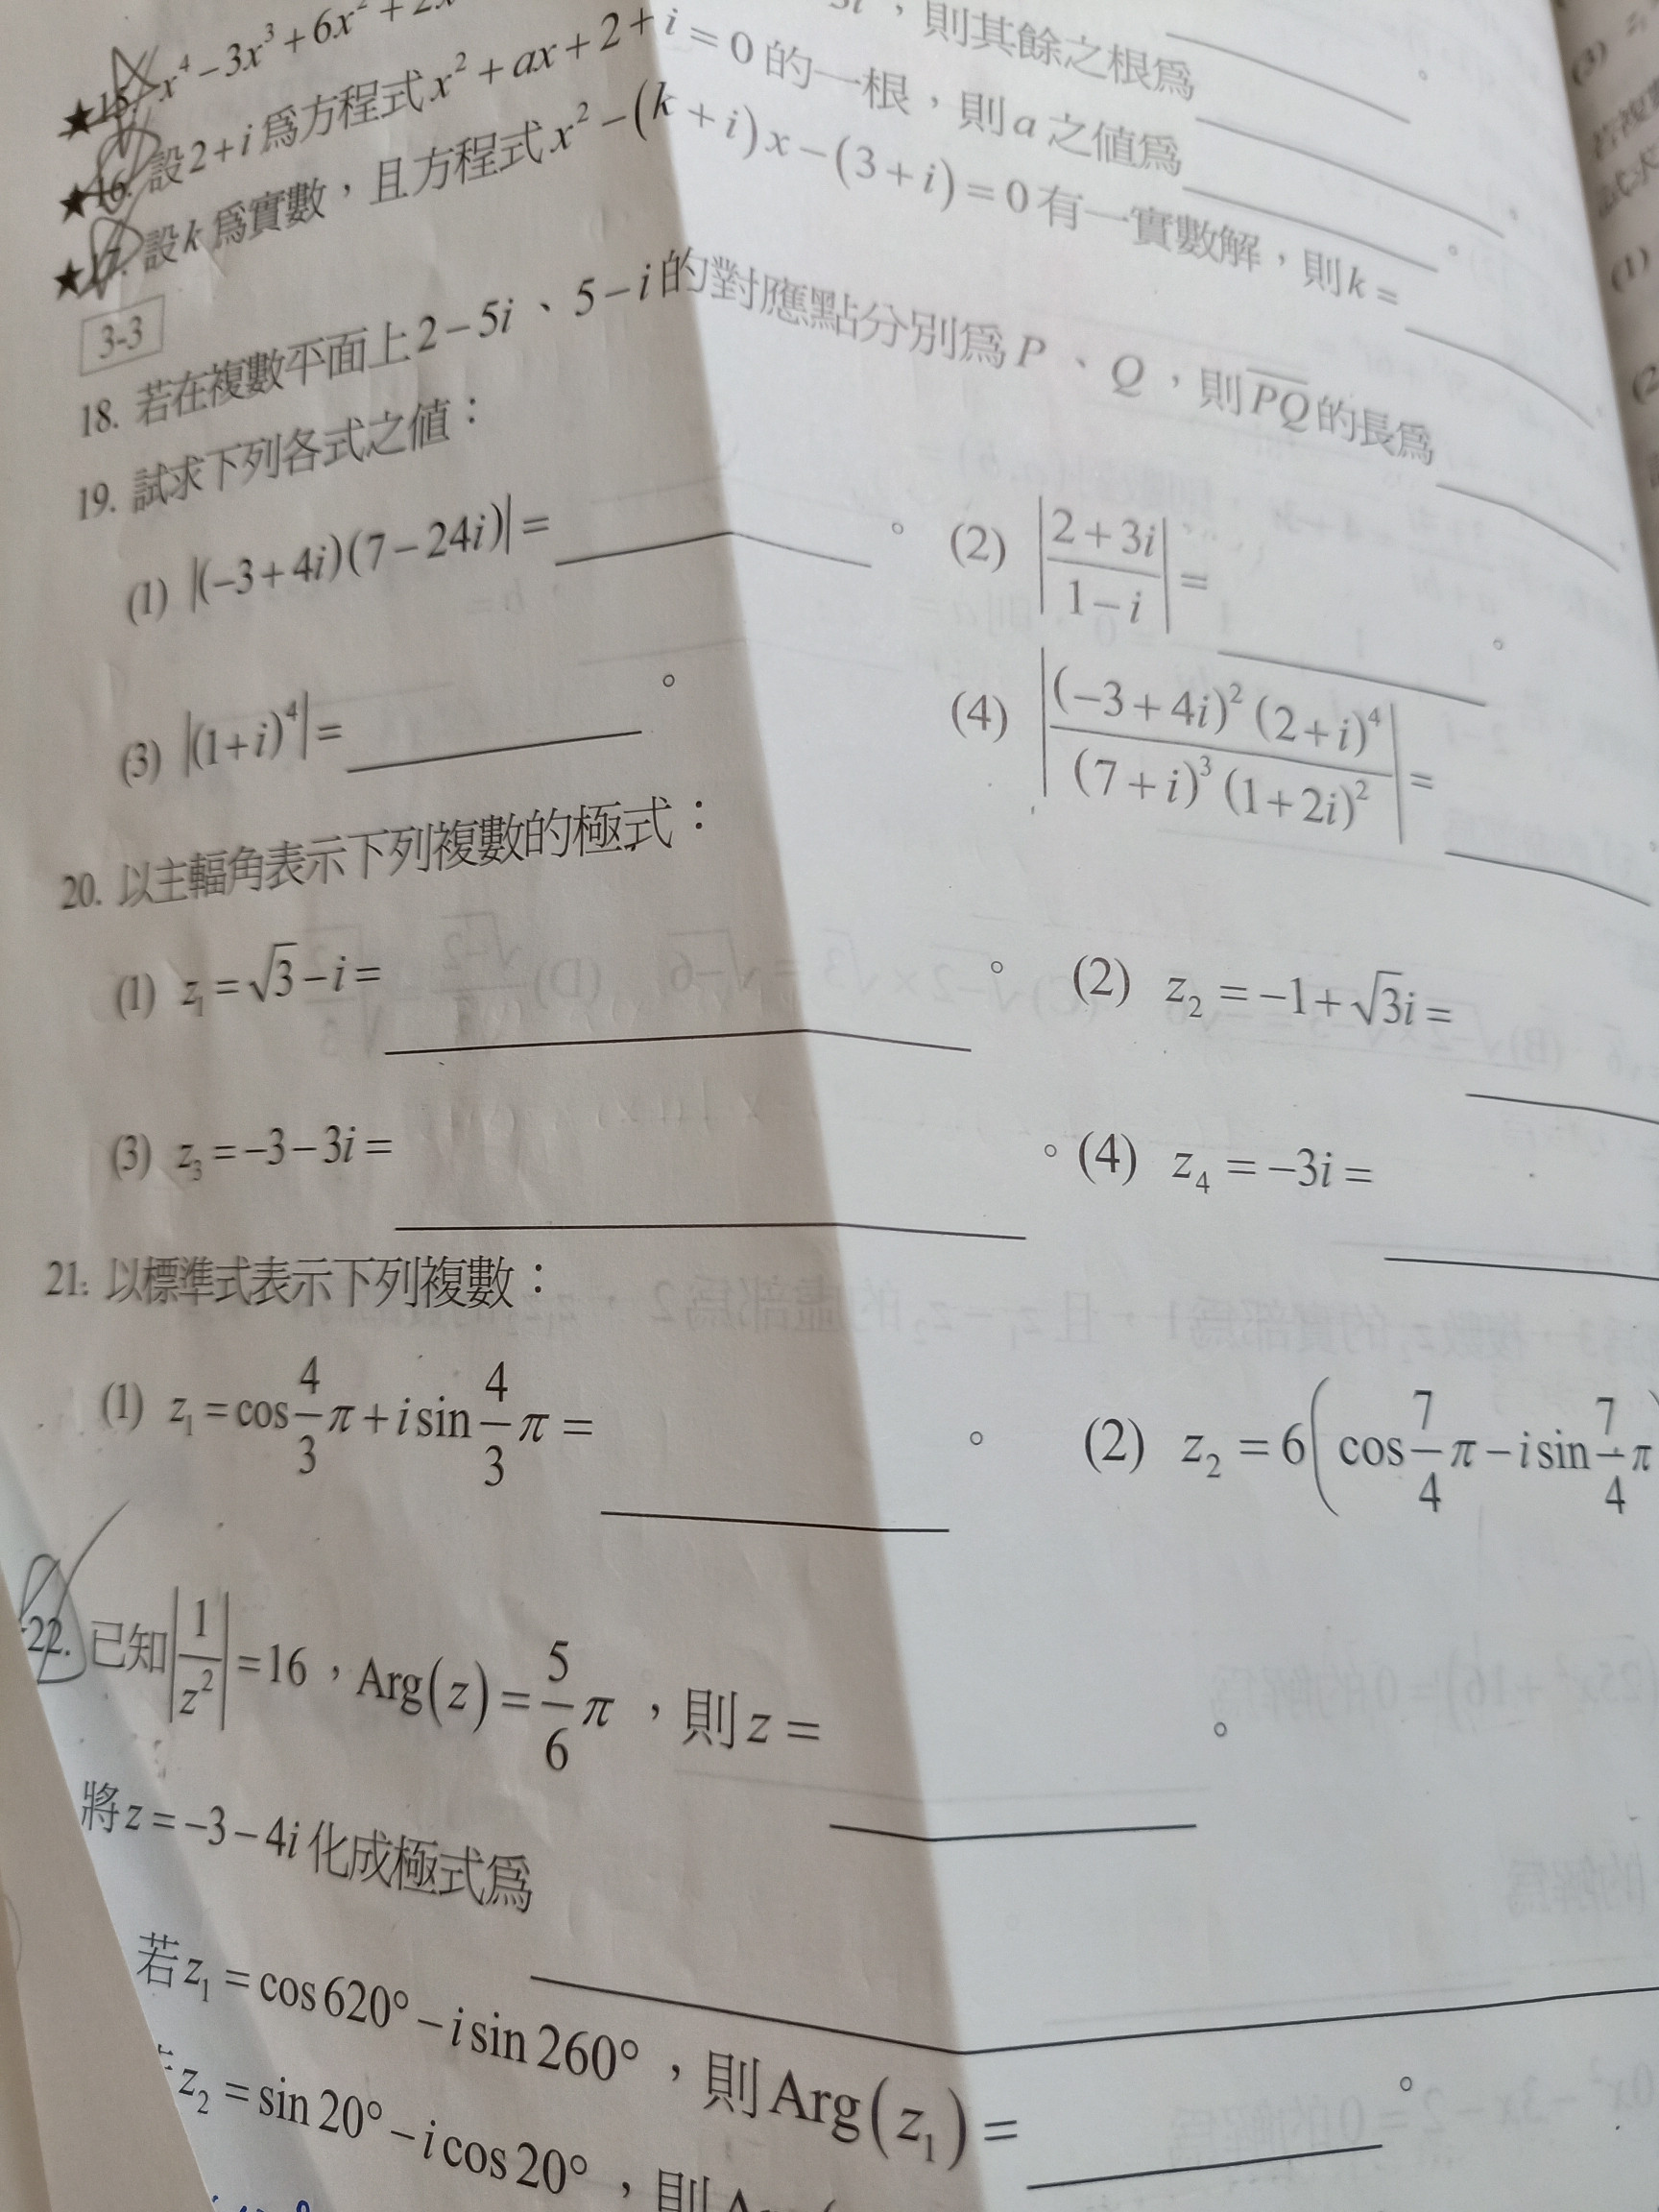 ★15. x⁴−3x³+6x²+2x
3i，則其餘之根爲 ______。
★16. 設2+i爲方程式x²+ax+2+i=0的一根，則a之值爲 ______。
★17. 設k爲實數，且方程式x²−(k+i)x−(3+i)=0有一實數解，則k= ______
3-3
18. 若在複數平面上2−5i、5−i的對應點分別爲P、Q，則\overline{PQ}的長爲 ______
19. 試求下列各式之值：
(1) |(−3+4i)(7−24i)|= ______。 (2) |\frac{2+3i}{1−i}|= ______。
(3) |(1+i)⁴|= ______。 (4) |\frac{(−3+4i)²(2+i)⁴}{(7+i)³(1+2i)²}|= ______。
20. 以主輻角表示下列複數的極式：
(1) z₁=√3−i= ______。 (2) z₂=−1+√3i= ______
(3) z₃=−3−3i= ______。 (4) z₄=−3i= ______
21. 以標準式表示下列複數：
(1) z₁=cos\frac{4}{3}π+isin\frac{4}{3}π= ______。 (2) z₂=6(cos\frac{7}{4}π−isin\frac{7}{4}π
22. 已知|\frac{1}{z²}|=16，Arg(z)=\frac{5}{6}π，則z= ______。
將z=−3−4i化成極式爲 ______
若z₁=cos620°−isin260°，則Arg(z₁)= ______。
z₂=sin20°−icos20°，則